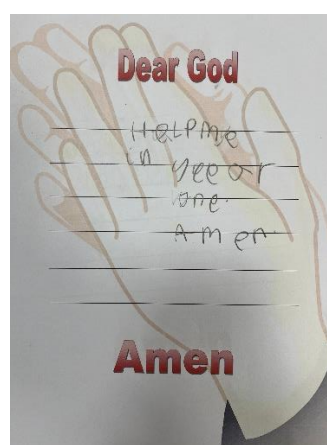 Dear God
Help me
in yeeor
one.
Amen
Amen